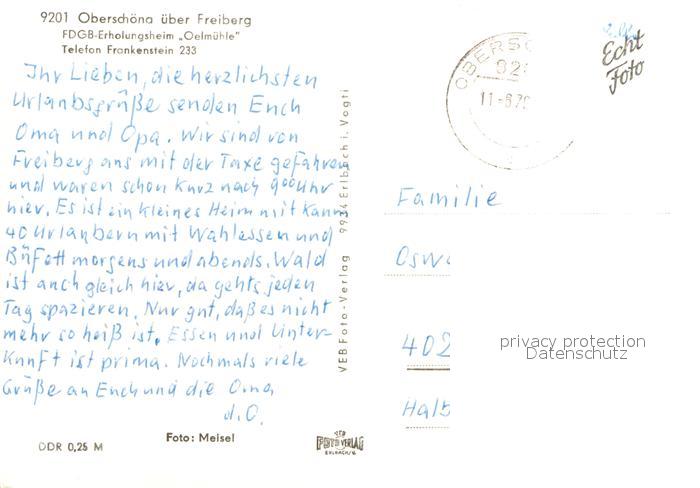 9201 Oberschöna über Freiberg
FDGB-Erholungsheim „Oelmühle"
Telefon Frankenstein 233
Ihr Lieben, die herzlichsten
Urlaubsgrüße senden Euch
Oma und Opa. Wir sind von
Freiberg aus mit der Taxe gefahren
und waren schon kurz nach 9 00 Uhr
hier. Es ist ein kleines Heim mit kaum
40 Urlaubern mit Wahlessen und
Büfett morgens und abends. Wald
ist auch gleich hier, da gehts jeden
Tag spazieren. Nur gut, daß es nicht
mehr so heiß ist. Essen und Unter-
kunft ist prima. Nochmals viele
Grüße an Euch und die Oma
d. O.
DDR 0,25 M
Foto: Meisel
VEB FOTO VERLAG ERLBACH/V.
VEB Foto-Verlag 9934 Erlbach i. Vogtl
OBERSC
92
11-6.79
Echt
Foto
Familie
Osw
402
Halb
privacy protection
Datenschutz